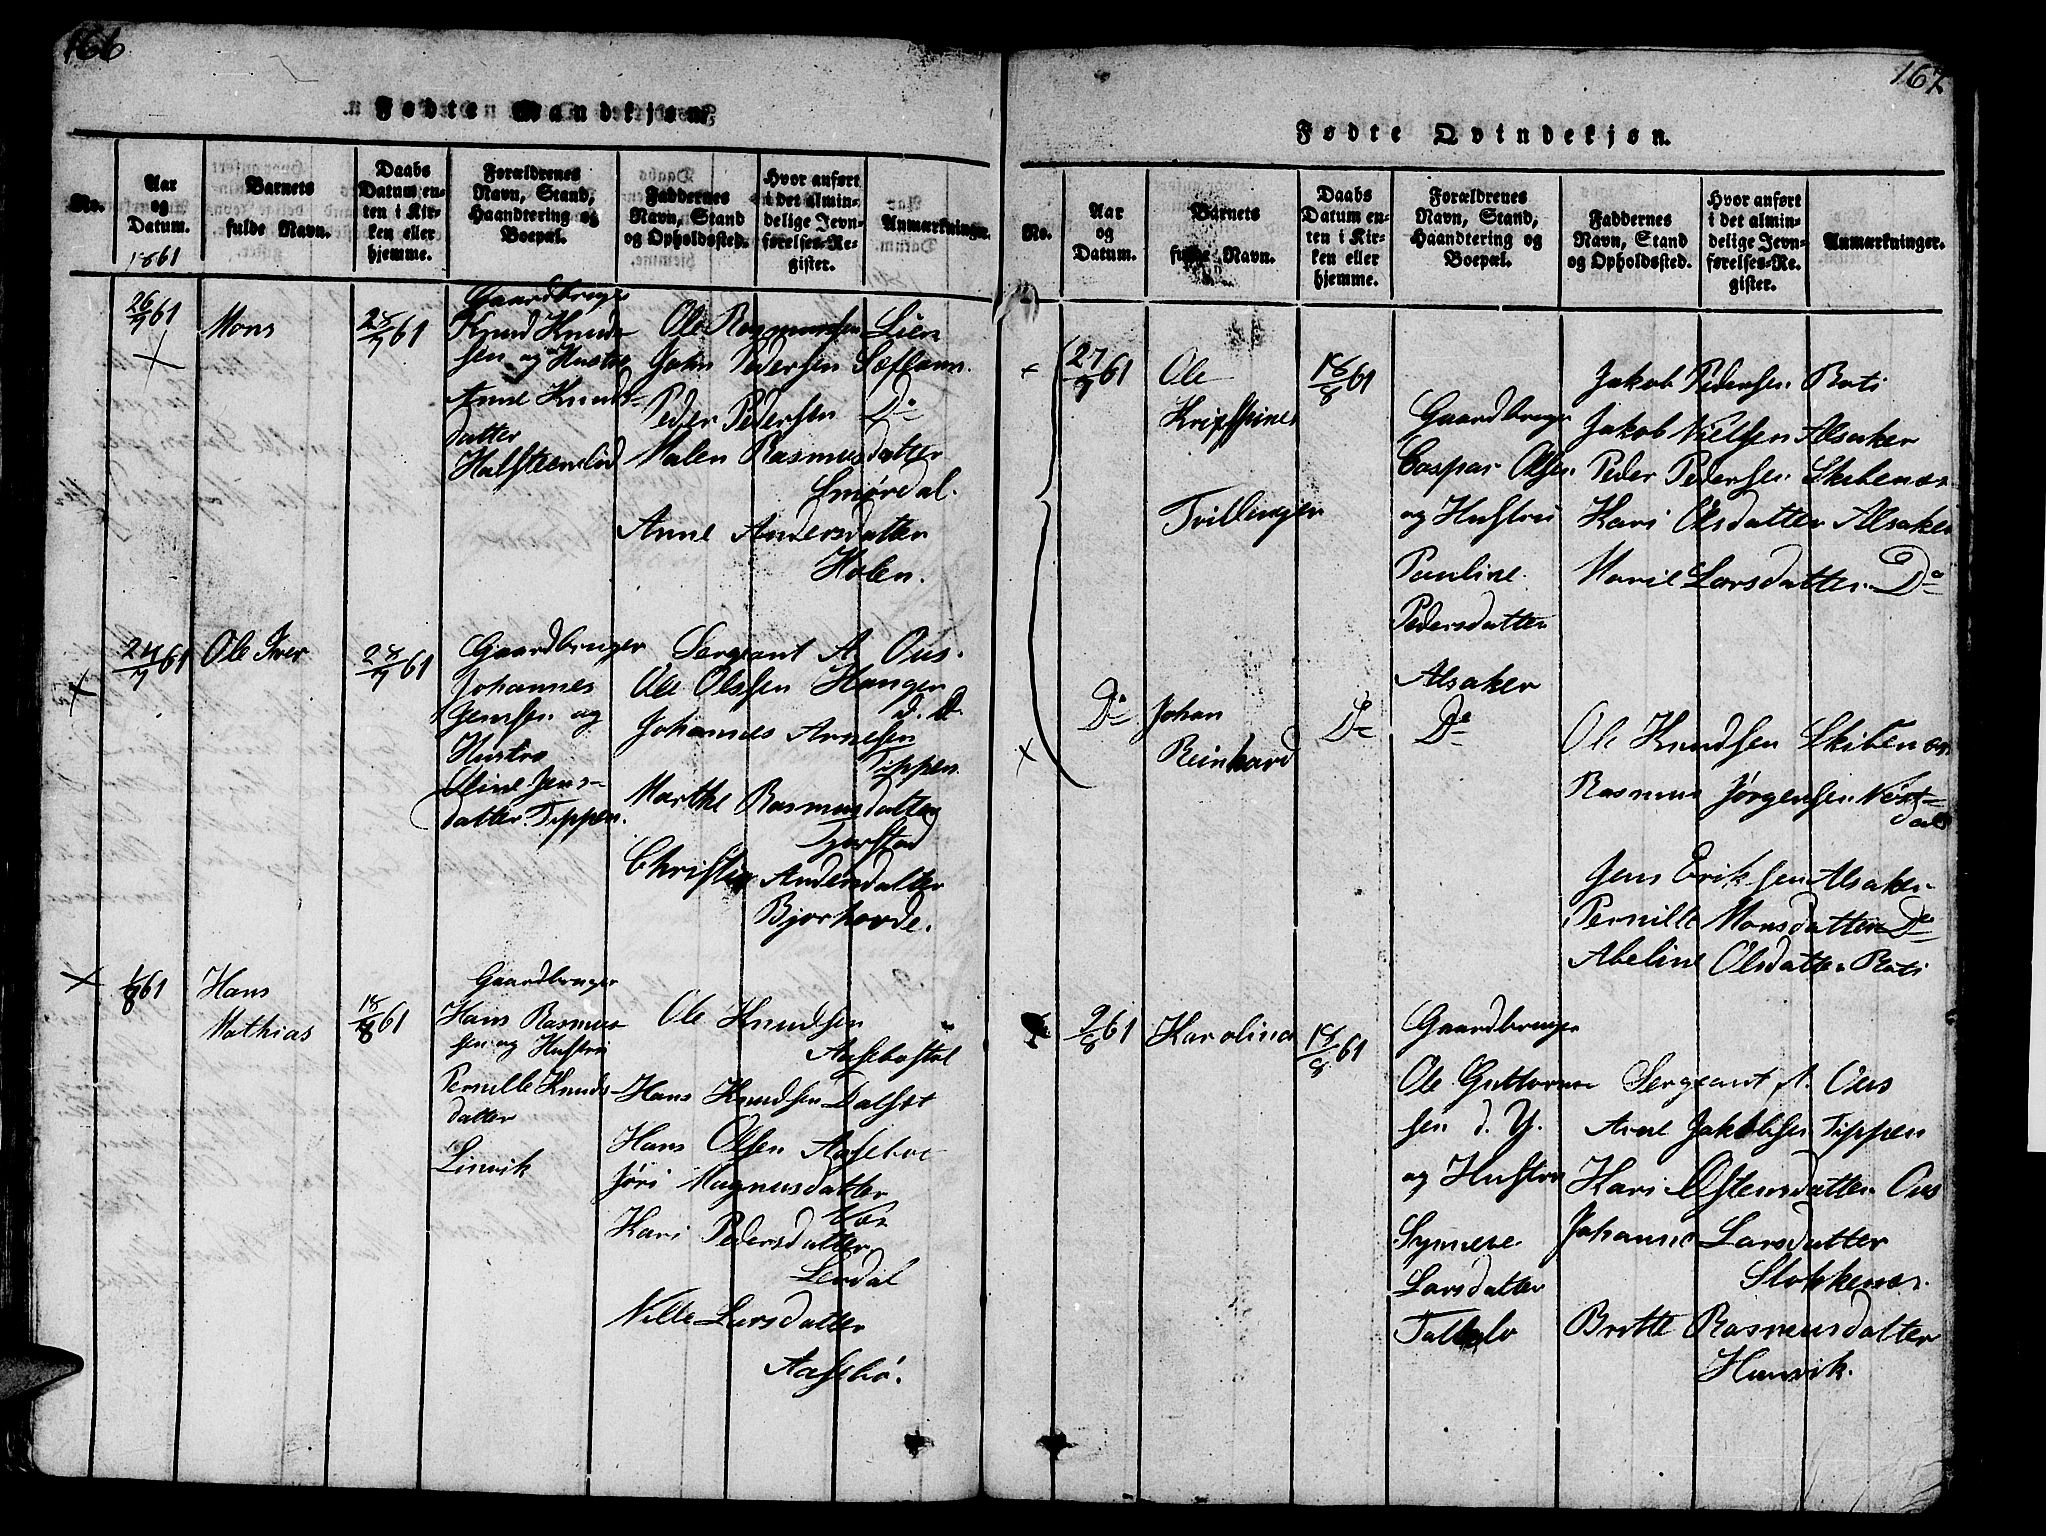 166
Fødte Mandkjøn.
No.
Aar og Datum.
1861
Barnets fulde Navn.
Daabs Datum enten i Kirken eller hjemme.
Forældrenes Navn, Stand, Haandtering og Boepæl.
Faddernes Navn, Stand og Opholdssted.
Hvor anført i det almindelige Jevnførelses-Register.
Anmærkninger.
26/7 61
Mons
28/7 61
Gaardbruger
Knud Knud-
sen og Hustru
Anne Knuds-
datter
Halsteenslid
Ole Rasmussen Lien
John Pedersen
Peder Pedersen Do
Malen Rasmusdatter
Smørdal.
Anne Andersdatter
Holen.
24/7 61
Ole Iver
28/7 61
Gaardbruger
Johannes
Jensen og
Hustru
Oline Jens-
datter Tippen.
Sergeant A. Ous.
Ole Olssen Hangen
Johannes Arnesen
Tippen
Marthe Rasmusdatter
Tjerstad
Christie Andersdatter
Bjørhovde.
1/8 61
Hans
Mathias
18/8 61
Gaardbruger
Hans Rasmus-
sen og Hustru
Pernille Knuds-
datter
Linvik
Ole Knudsen
Aasebøstøl
Hans Knudsen Dalset
Hans Olsen Aasebøe
Jøri Magnusdatter
Kari Pedersdatter
Lerdal
Nille Larsdatter
Aasebø.
167
Fødte Qvindekjøn.
No.
Aar og Datum.
Barnets fulde Navn.
Daabs Datum enten i Kirken eller hjemme.
Forældrenes Navn, Stand, Haandtering og Boepæl.
Faddernes Navn, Stand og Opholdssted.
Hvor anført i det almindelige Jevnførelses-Register.
Anmærkninger.
27/7 61
Ole
Tvillinger
18/8 61
Gaardbruger
Caspar Olsen
og Hustru
Pauline
Pedersdatter
Alsaker
Jakob Pedersen Boti
Jakob Nielsen Alsaker
Peder Pedersen Skibenes
Kari Olsdatter Alsaker
Marie Larsdatter Do
Do
Johan
Reinhard
Do
Do
Ole Knudsen Skibenes
Rasmus Jørgensen Nøst-
dal
Jens Eriksen Alsaker
Pernille Monsdatter Do
Abeline Olsdatter Boti
9/8 61
Karolina
18/8 61
Gaardbruger
Ole Guttorm-
sen d. Y.
og Hustru
Synneve
Larsdatter
Sergeant A. Ous
Arne Jakobsen Tippen
Kari Østensdatter Ous
Johanne Larsdatter
Stokkenes.
Britte Rasmusdatter
Humvik.